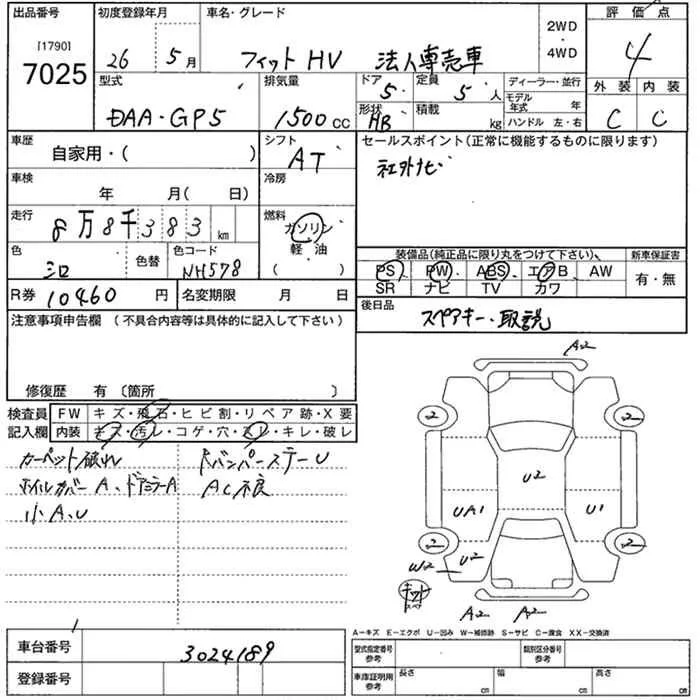 出品番号 初度登録年月 車名・グレード 2WD・4WD 評価点
[1790]
7025 26 5月 フィットHV 法人専売車 4
型式 排気量 ドア 定員 ディーラー・並行 外装 内装
DAA・GP5 1500CC 5 5人 モデル年式 年 C C
形状 積載 ハンドル 左・右
HB kg
車歴 シフト セールスポイント(正常に機能するものに限ります)
自家用・( ) AT 社外ナビ
車検 冷房
年 月( 日)
走行 燃料
8万8千383km ガソリン・軽油( )
色 色替 色コード 装備品(純正品に限り丸をつけて下さい) 新車保証書
シロ NH578 PS PW ABS エアB AW 有・無
SR ナビ TV カワ
R券 10460円 名変期限 月 日 後日品
スペアキー・取説
注意事項申告欄(不具合内容等は具体的に記入して下さい)
A2
修復歴 有〔箇所 〕
検査員記入欄 FW キズ・飛石・ヒビ割・リペア跡・X要
内装 キズ・汚レ・コゲ・穴・スレ・キレ・破レ
2 2
カーペット破れ RバンパーステーU
ホイルカバーA、ドアミラーA AC不良
小A、U
U2
UA1 U1
2 2
W2 U2
キット
A2 A2
A−キズ E−エクボ U−凹み W−補修跡 S−サビ C−腐食 XX−交換済
車台番号 3024189 型式指定番号 参考 類別区分番号 参考
登録番号 車庫証明用 参考 長さ cm 幅 cm 高さ cm